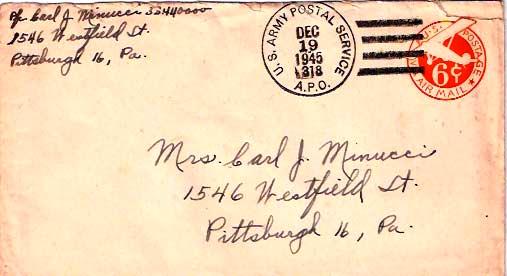 Pfc Carl J. Minucci 33440000
1546 Westfield St.
Pittsburgh 16, Pa.
U.S. ARMY POSTAL SERVICE
DEC
19
1945
A.P.O.
U.S. POSTAGE
6¢
AIR MAIL
Mrs. Carl J. Minucci
1546 Westfield St.
Pittsburgh 16, Pa.